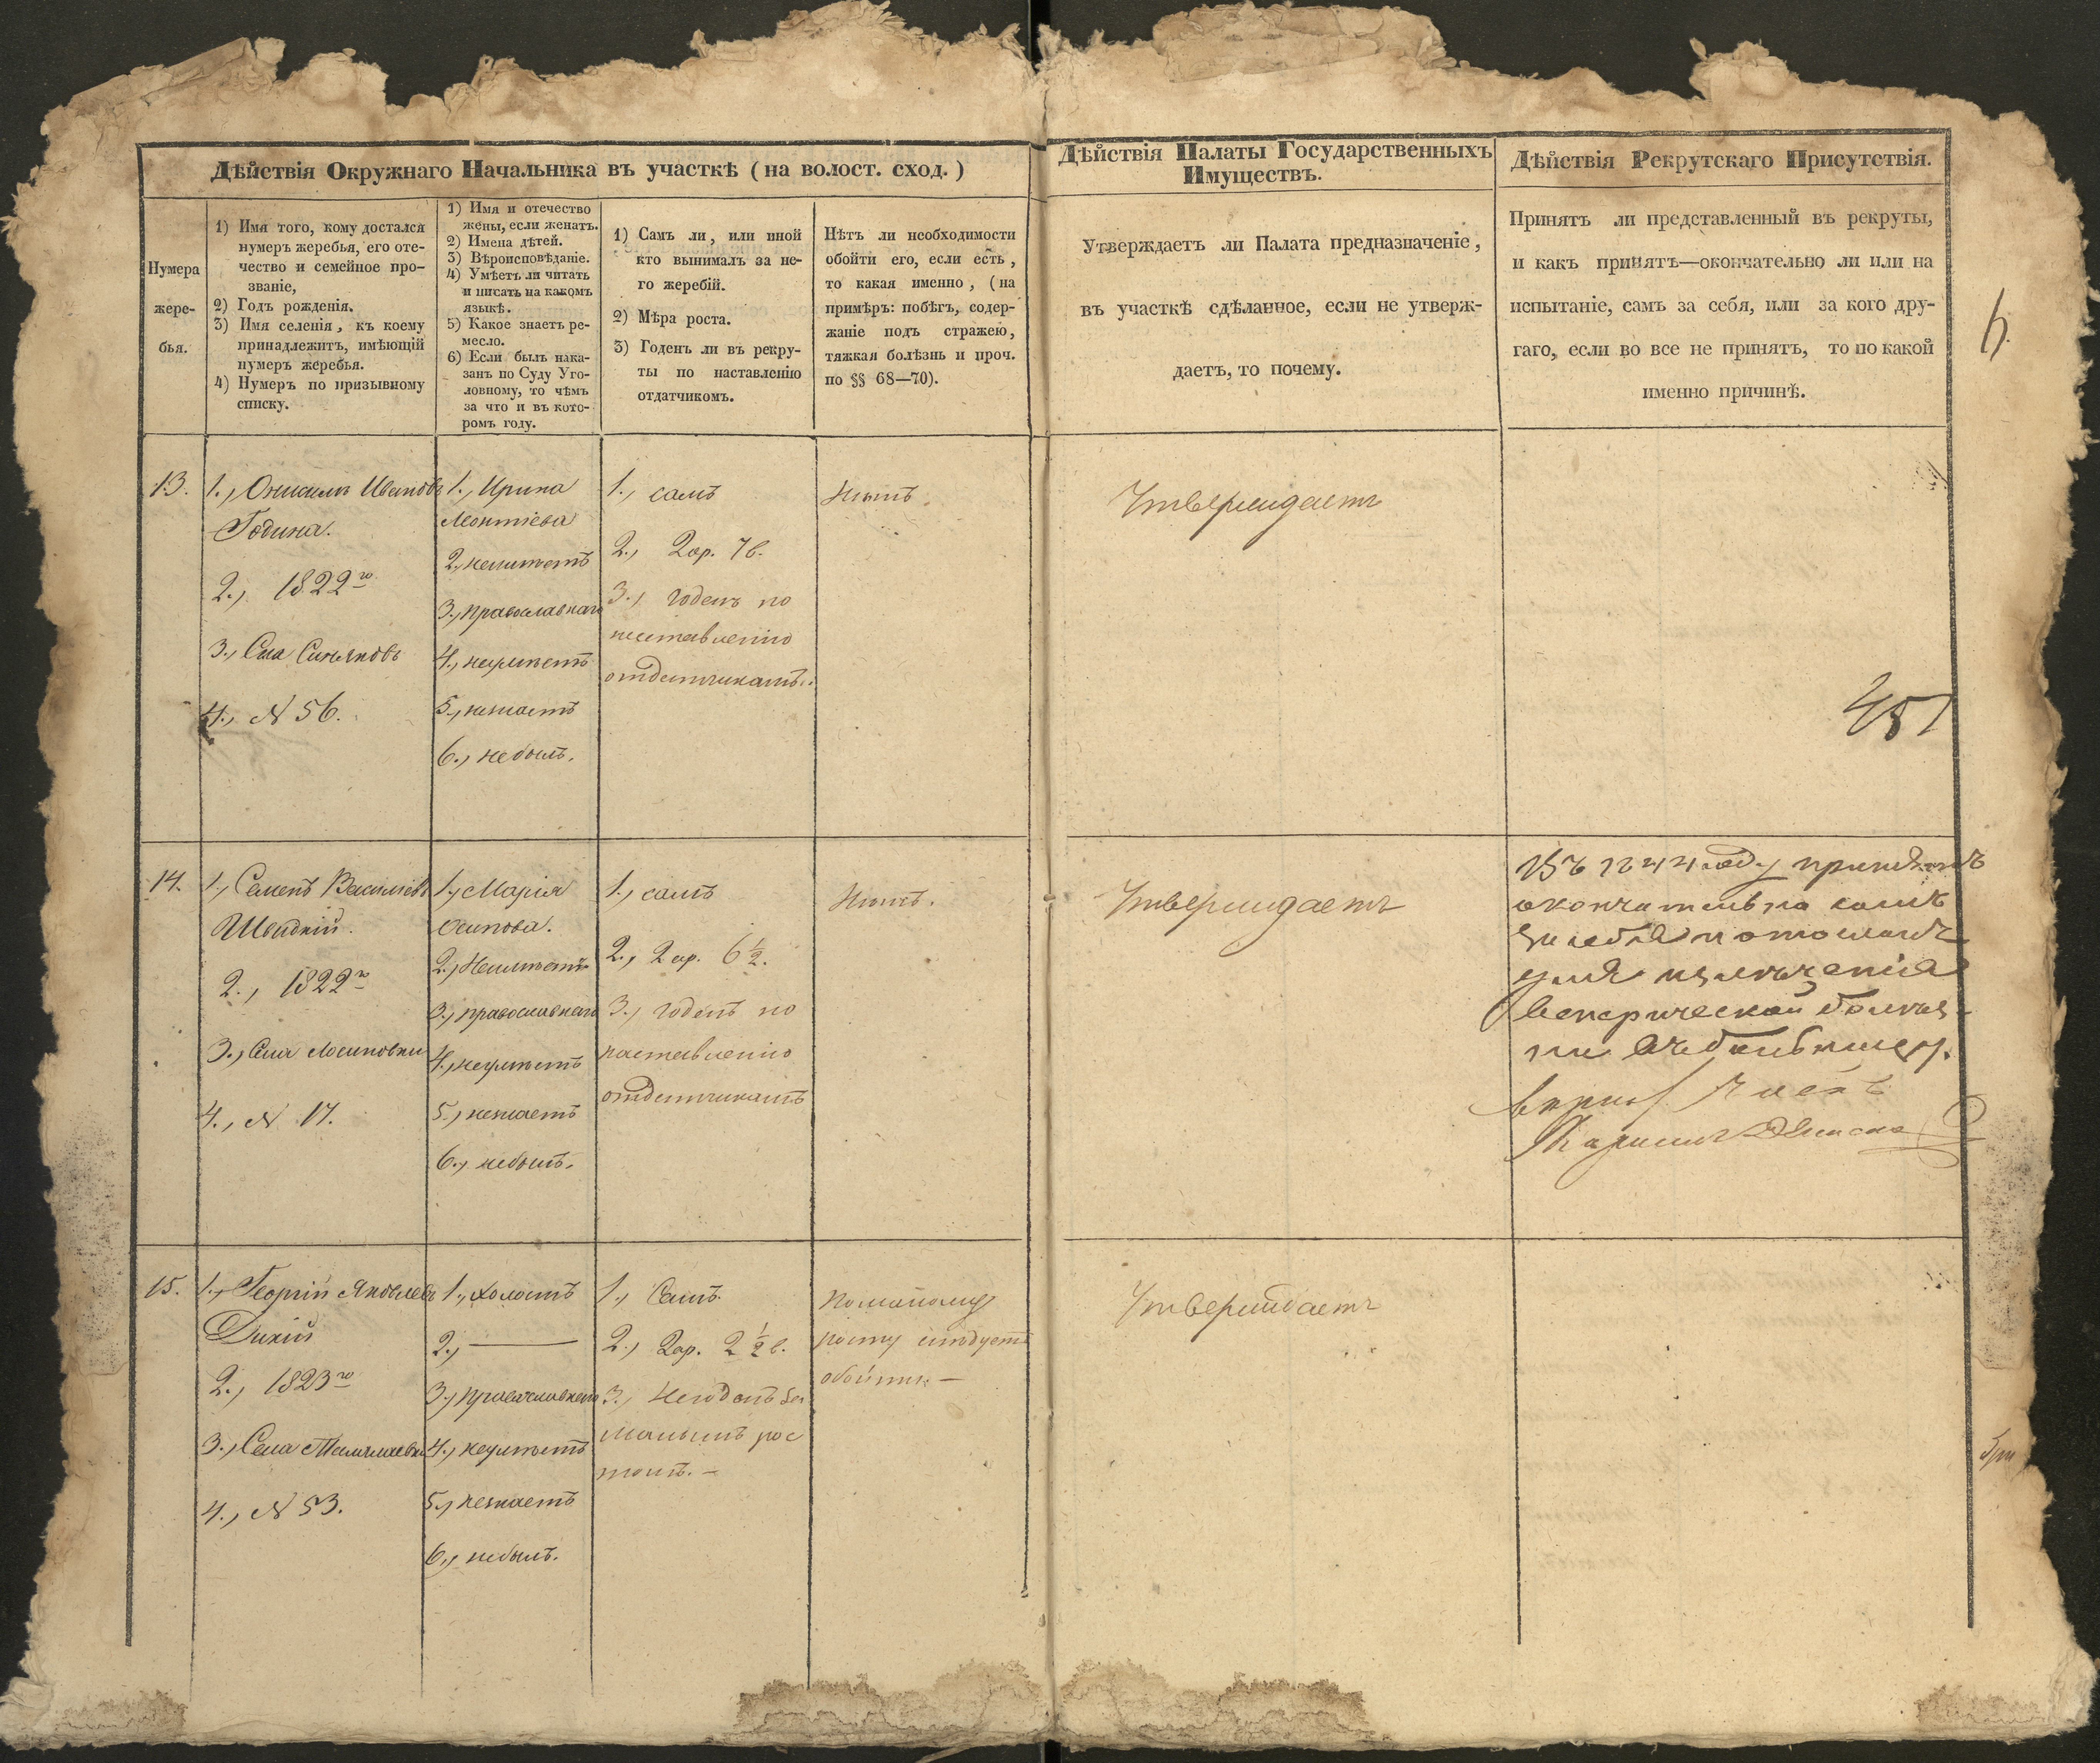 Дѣйствія Окружнаго Начальника въ участкѣ (на волост. сход.)
Нумера
жере-
бья.
1) Имя того, кому достался
нумеръ жеребья, его оте-
чество и семейное про-
званіе,
2) Годъ рожденія.
3) Имя селенія, къ коему
принадлежитъ, имѣющій
нумеръ жеребья.
4) Нумеръ по призывному
списку.
1) Имя и отечество
жены, если женатъ.
2) Имена дѣтей.
3) Вѣроисповѣданіе.
4) Умѣетъ ли читать
и писать на какомъ
языкѣ.
5) Какое знаетъ ре-
месло.
6) Если былъ нака-
занъ по Суду Уго-
ловному, то чѣмъ
за что и въ кото-
ромъ году.
1) Самъ ли, или иной
кто вынималъ за не-
го жеребій.
2) Мѣра роста.
3) Годенъ ли въ рекру-
ты по наставленію
отдатчикомъ.
Нѣтъ ли необходимости
обойти его, если есть,
то какая именно, (на
примѣръ: побѣгъ, содер-
жаніе подъ стражею,
тяжкая болѣзнь и проч.
по §§ 68—70).
Дѣйствія Палаты Государственныхъ
Имуществъ.
Утверждаетъ ли Палата предназначеніе,
въ участкѣ сдѣланное, если не утверж-
даетъ, то почему.
Дѣйствія Рекрутскаго Присутствія.
Принятъ ли представленный въ рекруты,
и какъ принятъ—окончательно ли или на
испытаніе, самъ за себя, или за кого дру-
гаго, если во все не принятъ, то по какой
именно причинѣ.
13.
1., Онисимъ Ивановъ
Година.
2., 1822го
3., Села
4., N 56.
1., Ирина
Леонтіева
2., неимѣетъ
3., православнаго
4., неумѣетъ
5., незнаетъ
6., небылъ.
1., самъ
2., 2 ар. 7 в.
3., годенъ по
наставленію
отдатчикамъ.
Нѣтъ
Утверждаетъ
451
14.
1., Семенъ Василіевъ
Швидкій.
2., 1822го
3., Села Лосиновки
4., N 17.
1., Марія
Осипова.
2., Неимѣетъ
3., православнаго
4., неумѣетъ
5., незнаетъ
6., небылъ.
1., самъ
2., 2 ар. 6 1/2.
3., годенъ по
наставленію
отдатчикамъ
Нѣтъ.
Утверждаетъ
Въ 1844 году принятъ
окончательно самъ
за себя и отосланъ
для излеченія
венерической болѣз-
ни
15.
1., Георгій Яковлевъ
Дикій
2., 1823го
3., Села
4., N 53.
1., холостъ
2., —
3., православнаго
4., неумѣетъ
5., незнаетъ
6., небылъ.
1., Самъ.
2., 2 ар. 2 1/2 в.
3., Негоденъ за
малымъ рос
томъ. —
По малому
росту слѣдуетъ
обойти. —
Утверждаетъ